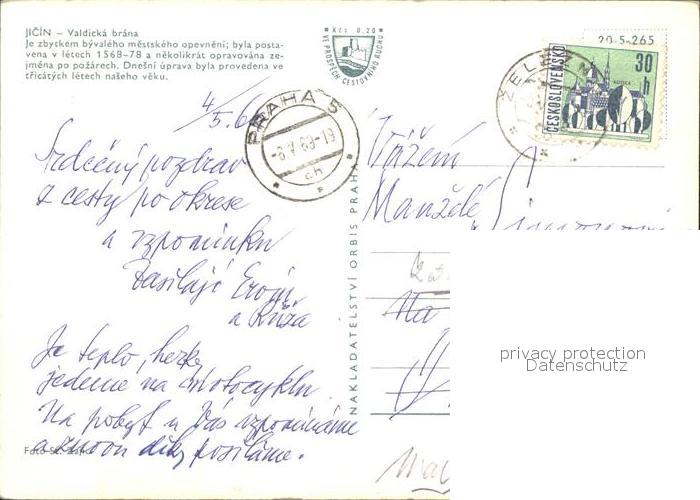 JIČÍN – Valdická brána
Je zbytkem bývalého městského opevnění; byla posta-
vena v létech 1568–78 a několikrát opravována ze-
jména po požárech. Dnešní úprava byla provedena ve
třicátých létech našeho věku.
Kčs 0.20
VE PROSPĚCH CESTOVNÍHO RUCHU
20-5-265
ČESKOSLOVENSKO
30
h
PRAHA 5
-6.V.69-19
ch
4/5. 6
Srdečný pozdrav
z cesty po okrese
a vzpomínku
zasílají
a Růža
Je teplo, hezky
jedeme na motocyklu
Na pobyt u Vás vzpomínáme
a znovu díky posíláme.
NAKLADATELSTVÍ ORBIS PRAHA
Vážení
Manželé
Na
privacy protection
Datenschutz